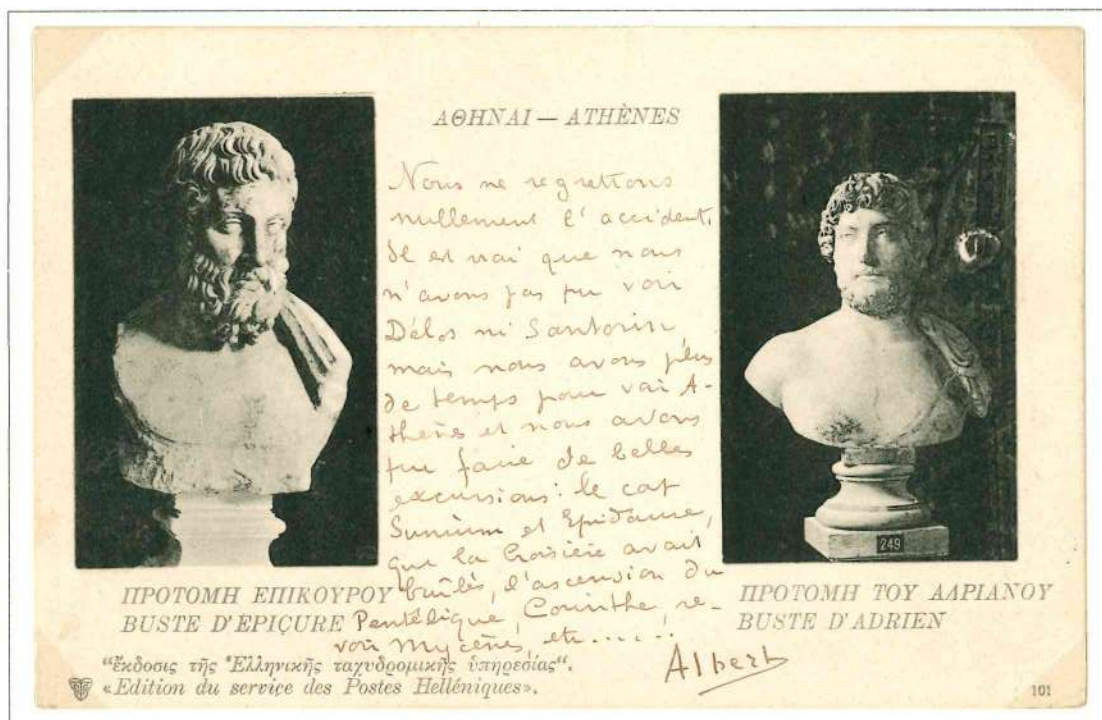 ΑΘΗΝΑΙ — ATHÈNES
Nous ne regrettons
nullement l'accident.
Il est vrai que nous
n'avons pas pu voir
Délos ni Santorin
mais nous avons plus
de temps pour voir A-
thènes et nous avons
pu faire de belles
excursions: le cap
Sunium et Epidaure,
que la Croisière avait
brûlés, l'ascension du
Pentélique, Corinthe, re-
voir Mycènes, etc......
Albert
249
ΠΡΟΤΟΜΗ ΕΠΙΚΟΥΡΟΥ
BUSTE D'ÉPIÇURE
ΠΡΟΤΟΜΗ ΤΟΥ ΑΔΡΙΑΝΟΥ
BUSTE D'ADRIEN
"ἔκδοσις τῆς Ἑλληνικῆς ταχυδρομικῆς ὑπηρεσίας".
«Edition du service des Postes Helléniques».
101